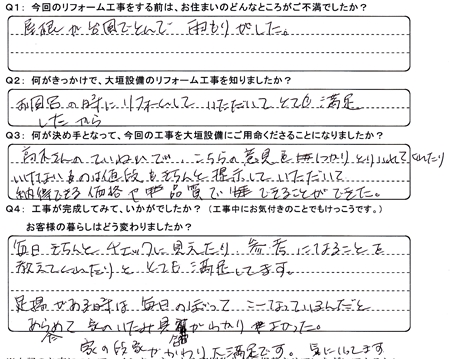 Q1: 今回のリフォーム工事をする前は、お住まいのどんなところがご不満でしたか?
屋根が台風でとんで 雨もりがした。
Q2: 何がきっかけで、大垣設備のリフォーム工事を知りましたか?
前回の時にリフォームして いただいて とても 満足
したから
Q3: 何が決め手となって、今回の工事を大垣設備にご用命くださることになりましたか?
さんの ていねいで こちらの意見も しっかり とりいれてくれたり
いけないものは値段もきちんと 提示して いただいて
納得できる 価格や 品質で できることができた。
Q4: 工事が完成してみて、いかがでしたか? (工事中にお気付きのことでもけっこうです。)
お客様の暮らしはどう変わりましたか?
毎日 きちんと チェックに 見えたり 参考 になることを
教えてくれたりと とても 満足してます。
足場がある時は 毎日 のぼって こーなっているんだと
あらためて 家の いたみ 具合がわかり よかった。
家の がかわり 大満足です。 気に入ってます